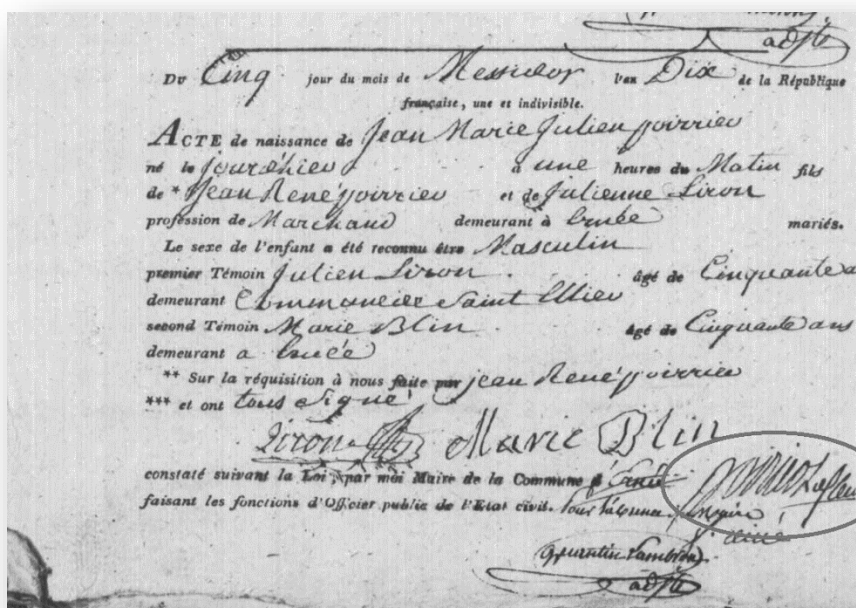 adjt
Du Cinq jour du mois de Messidor l'an Dix de la République
française, une et indivisible.
ACTE de naissance de Jean Marie Julien poirrier
né le jour d'hier à une heures du Matin fils
de * Jean René poirrier et de Julienne Liron
profession de Marchand demeurant à Ernée mariés.
Le sexe de l'enfant a été reconnu être Masculin
premier Témoin Julien Liron âgé de Cinquante a
demeurant Commune de Saint Ellier
second Témoin Marie Blin âgé de Cinquante ans
demeurant a Ernée
** Sur la réquisition à nous faite par jean René poirrier
*** et ont tous signé
Liron Marie Blin
constaté suivant la Loi, par moi Maire de la Commune d'Ernée
faisant les fonctions d'Officier public de l'Etat civil. Pour l'absence
maire
Quentin Lambron
adjt